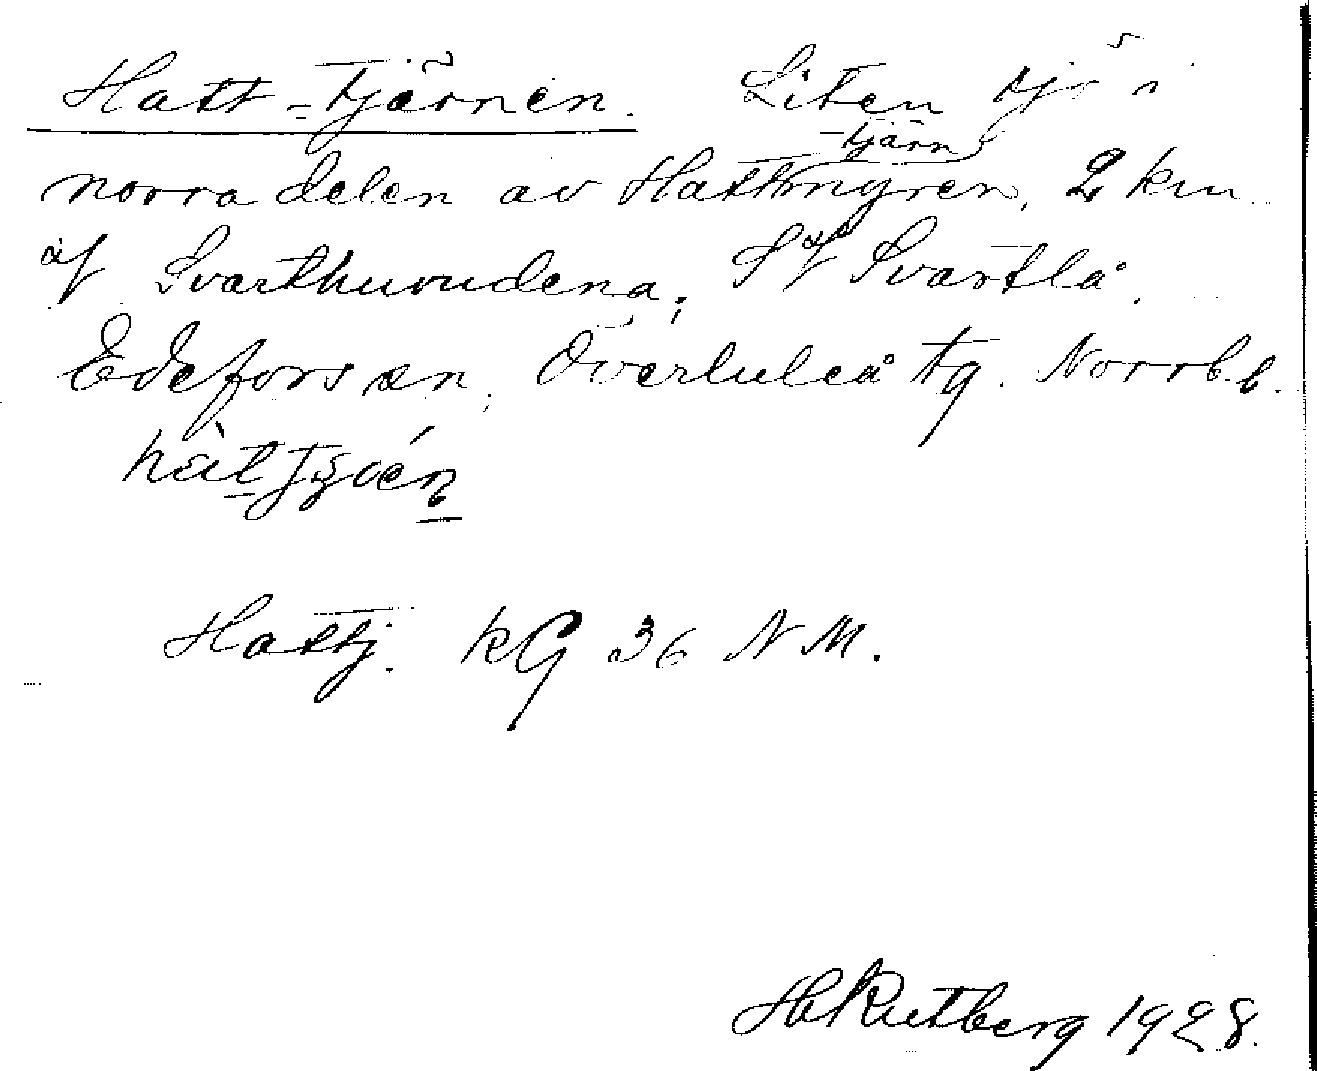 Hatt-tjärnen. Liten tjä i
-tjärn
norra delen av Hattmyren, 2 km
af Svarthuvudena; St Svartlå.
Edefors sn, Överluleå tg. Norrb. l.
Hattj. kG 36 NM.
H Rutberg 1928.